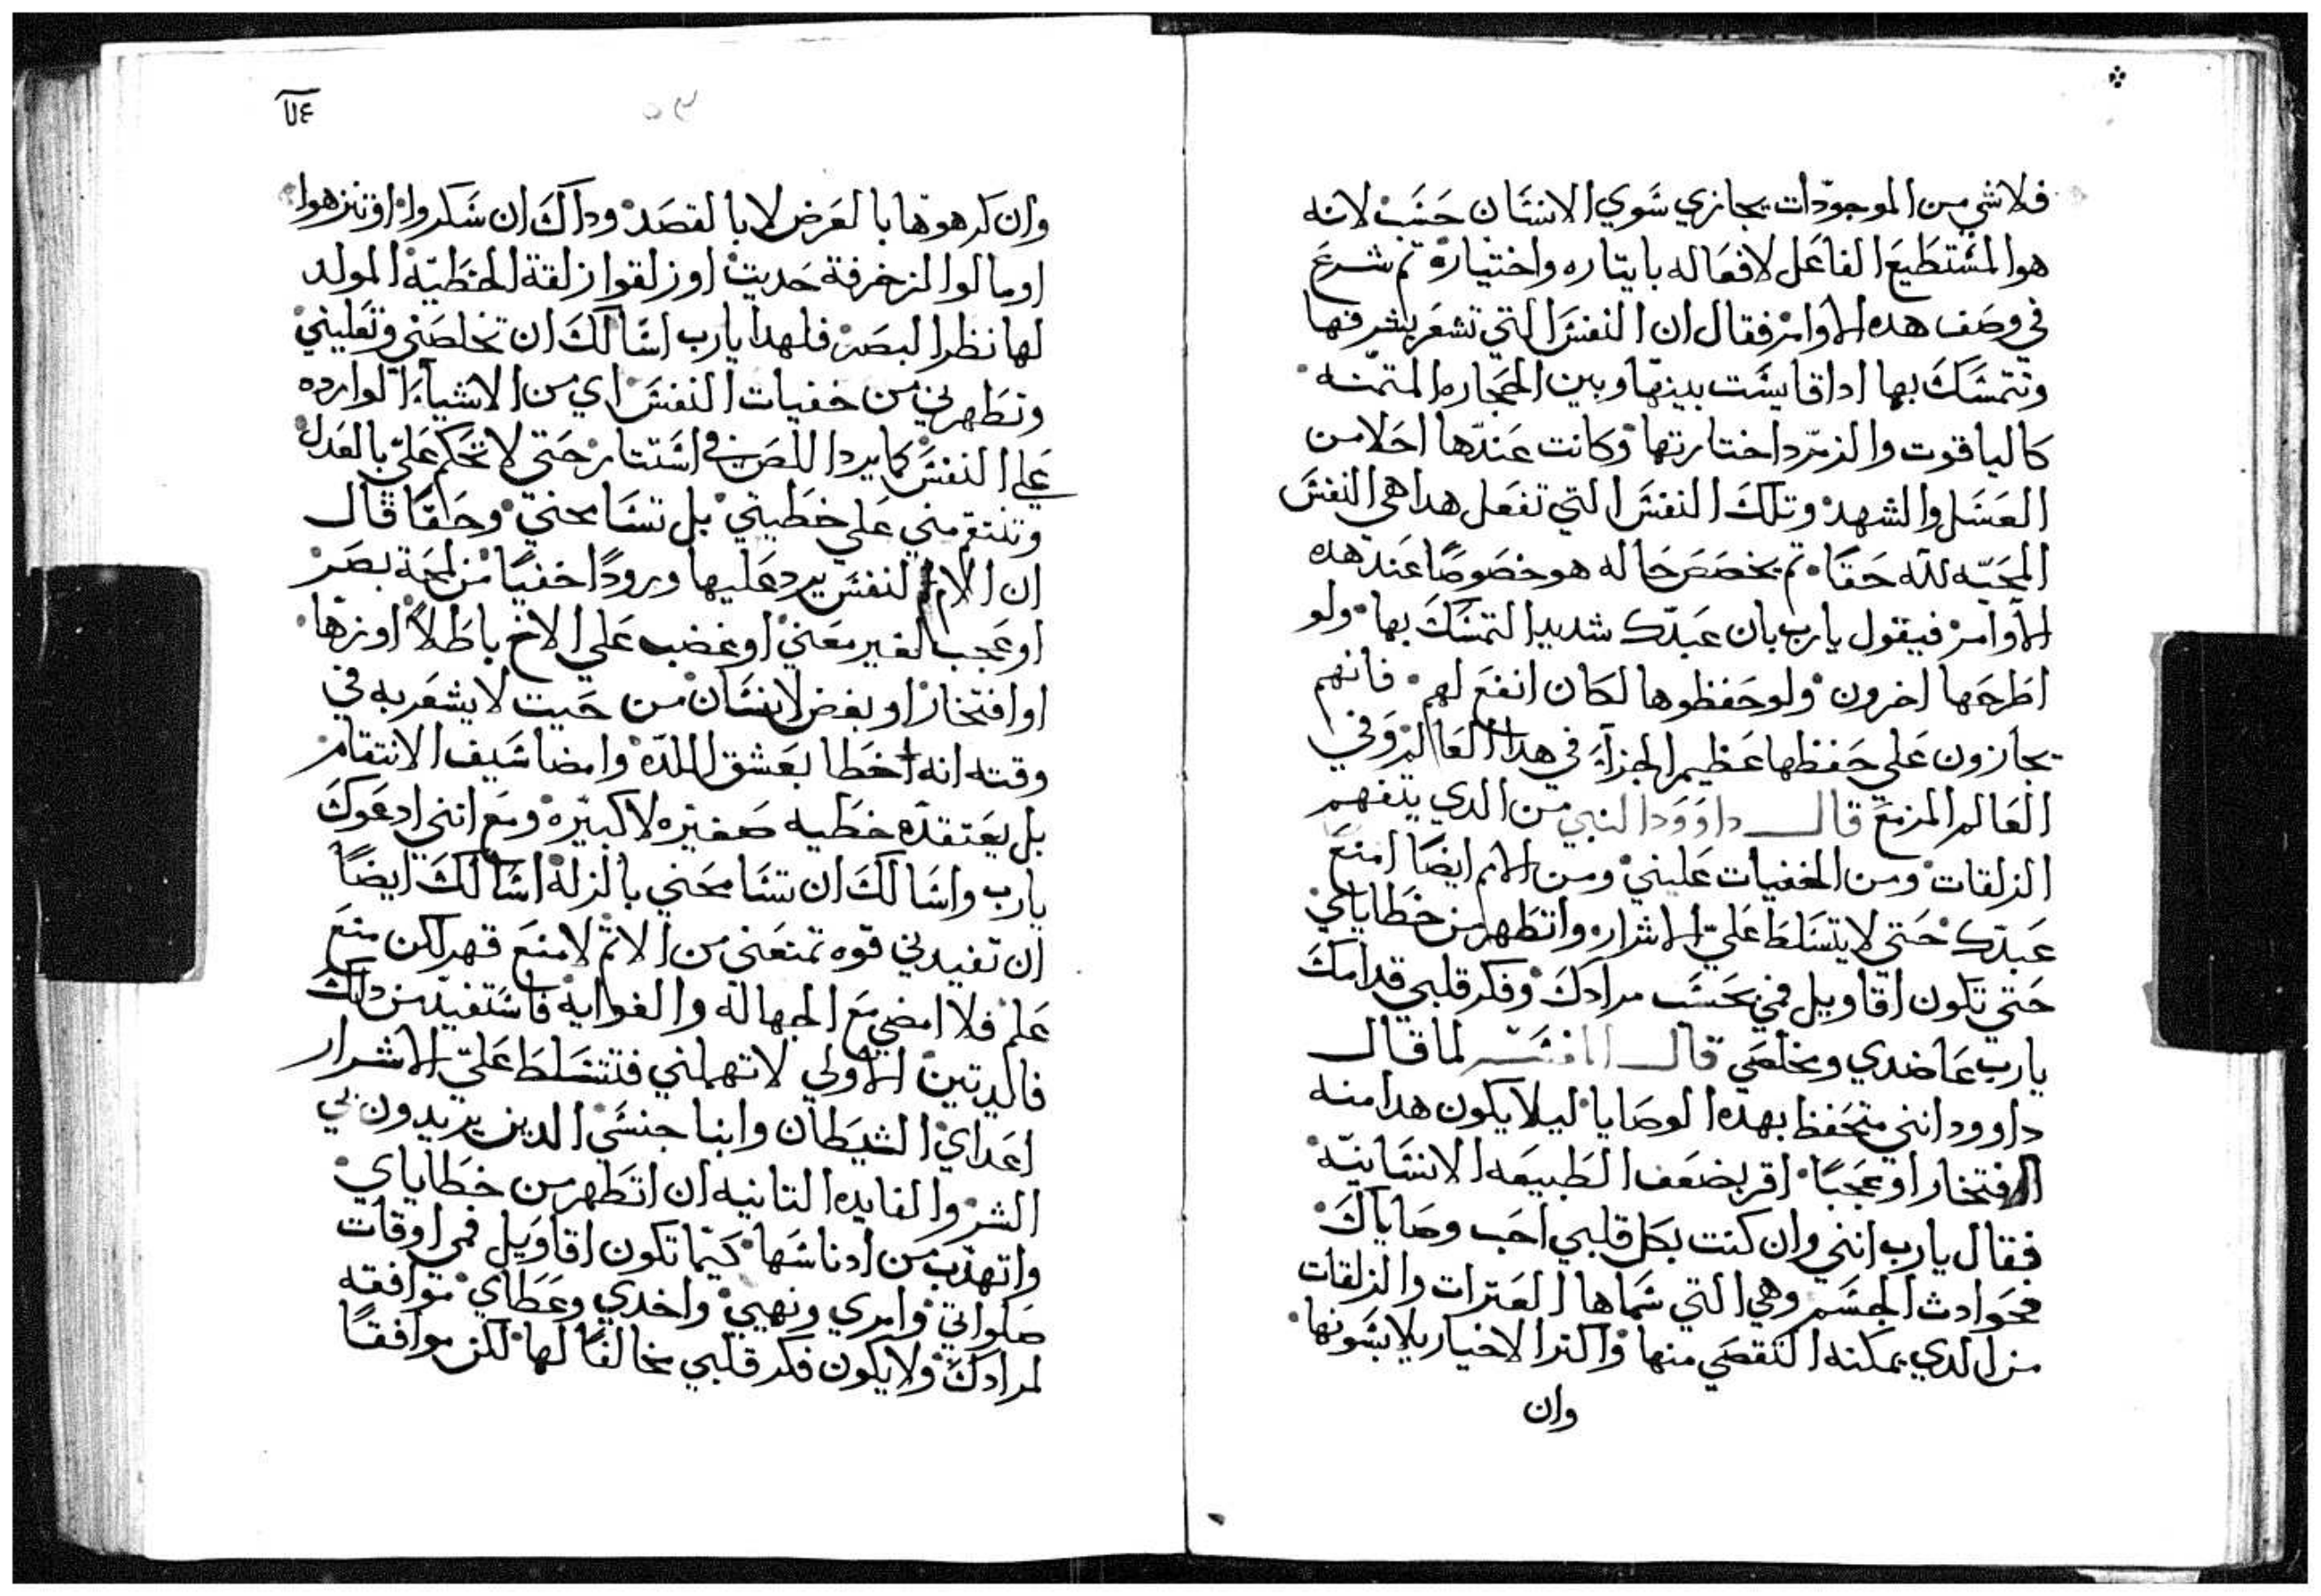 فلاشي من الموجودات يجازي سوي الانسان حسب لانه
هو المستطيع الفاعل لافعاله بايتاره واختياره تم شرع
في وصف هده الاوامر فقال ان النفس التي تشعر بشرفها
وتتمسك بها ادا قايست بينها وبين الحجاره المتمنه
كالياقوت والزمرد اختارتها وكانت عندها احلا من
العسل والشهد وتلك النفس التي تفعل هدا هي النفس
المحبه لله حقا تم يخصص حاله هو خصوصا عند هده
الاوامر فيقول يارب بان عبدك شديد التمسك بها ولو
اطرحها اخرون ولو حفظوها لكان انفع لهم فانهم
يجازون علي حفظها عظيم الجزاء في هدا العالم وفي
العالم المزمع قال داوود النبي من الدي يتفهم
الزلقات ومن الخفيات علبني ومن الامم ايضا امنع
عبدك حتي لا يتسلط علي الاشرار واتطهر من خطاياي
حتي تكون اقاويل فمي بحسب مرادك وفكر قلبي قدامك
يارب عاضدي ومخلصي قال المفسر لما قال
داوود انني متحفظ بهده الوصايا ليلا يكون هدا منه
افتخارا وعجبا اقر بضعف الطبيعه الانسانيه
فقال يارب انني وان كنت بكل قلبي احب وصاياك
فحوادث الجسم وهي التي سماها العترات والزلقات
من الدي يمكنه التقصي منها واكتر الاخيار يلابسونها
وان
٦٤
٥٣
وان كرهوها بالعرض لا بالقصد وداك ان سكروا او تنزهوا
او مالوا لزخرفة حديت او زلقوا زلقة الخطيه المولد
لها نظر البصر فلهدا يارب اسالك ان تخلصني وتعليني
وتطهرني من خفيات النفس اي من الاشياء الوارده
علي النفس كما يرد اللص في استتار حتي لا تحكم علي بالعدل
وتنتقم مني علي خطيتي بل تسامحني وحقا قال
ان الام النفس يرد عليها ورودا خفيا من لمحة بصر
او عجب لغير معني او غضب علي الاخ باطلا او زها
او افتخار او بغض لانسان من حيت لا يشعر به في
وقته انه اخطا بعشق اللده وامضا سيف الانتقام
بل يعتقده خطيه صغيره لا كبيره ومع انني ادعوك
يارب واسالك ان تسامحني بالزله اسالك ايضا
ان تفيدني قوه تمنعني من الاتم لا منع قهر لكن منع
علم فلا امضي مع الجهاله والغوايه فاستفيد من دلك
فايدتين الاولي لا تهملني فتتسلط علي الاشرار
اعداي الشيطان وابنا جنسي الدين يريدون بي
الشر والفايده التانيه ان اتطهر من خطاياي
واتهدب من ادناسها كيما تكون اقاويل فمي اوقات
صلواتي وامري ونهيي واخدي وعطاي موافقه
لمرادك ولا يكون فكر قلبي مخالفا لها لكن موافقا